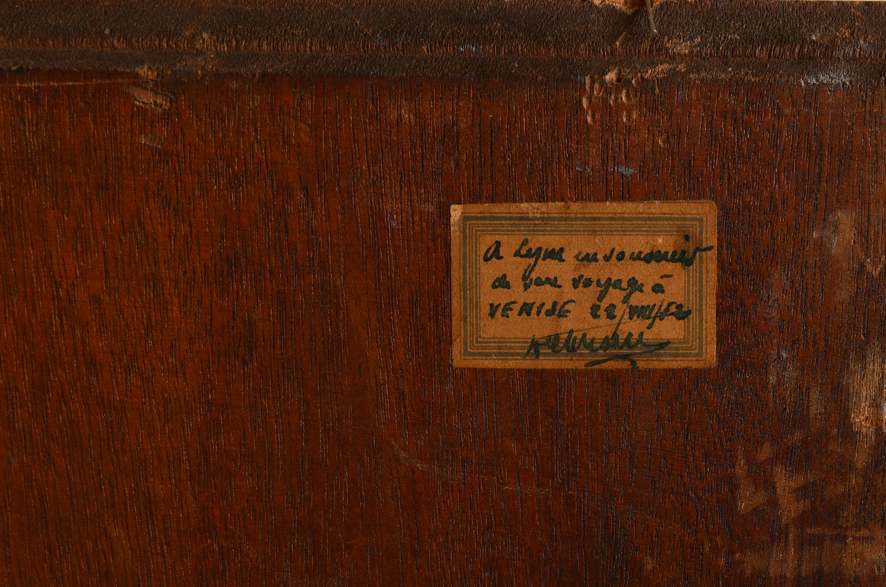 A Lyne en souvenir
de son voyage à
VENISE 22/VIII/52